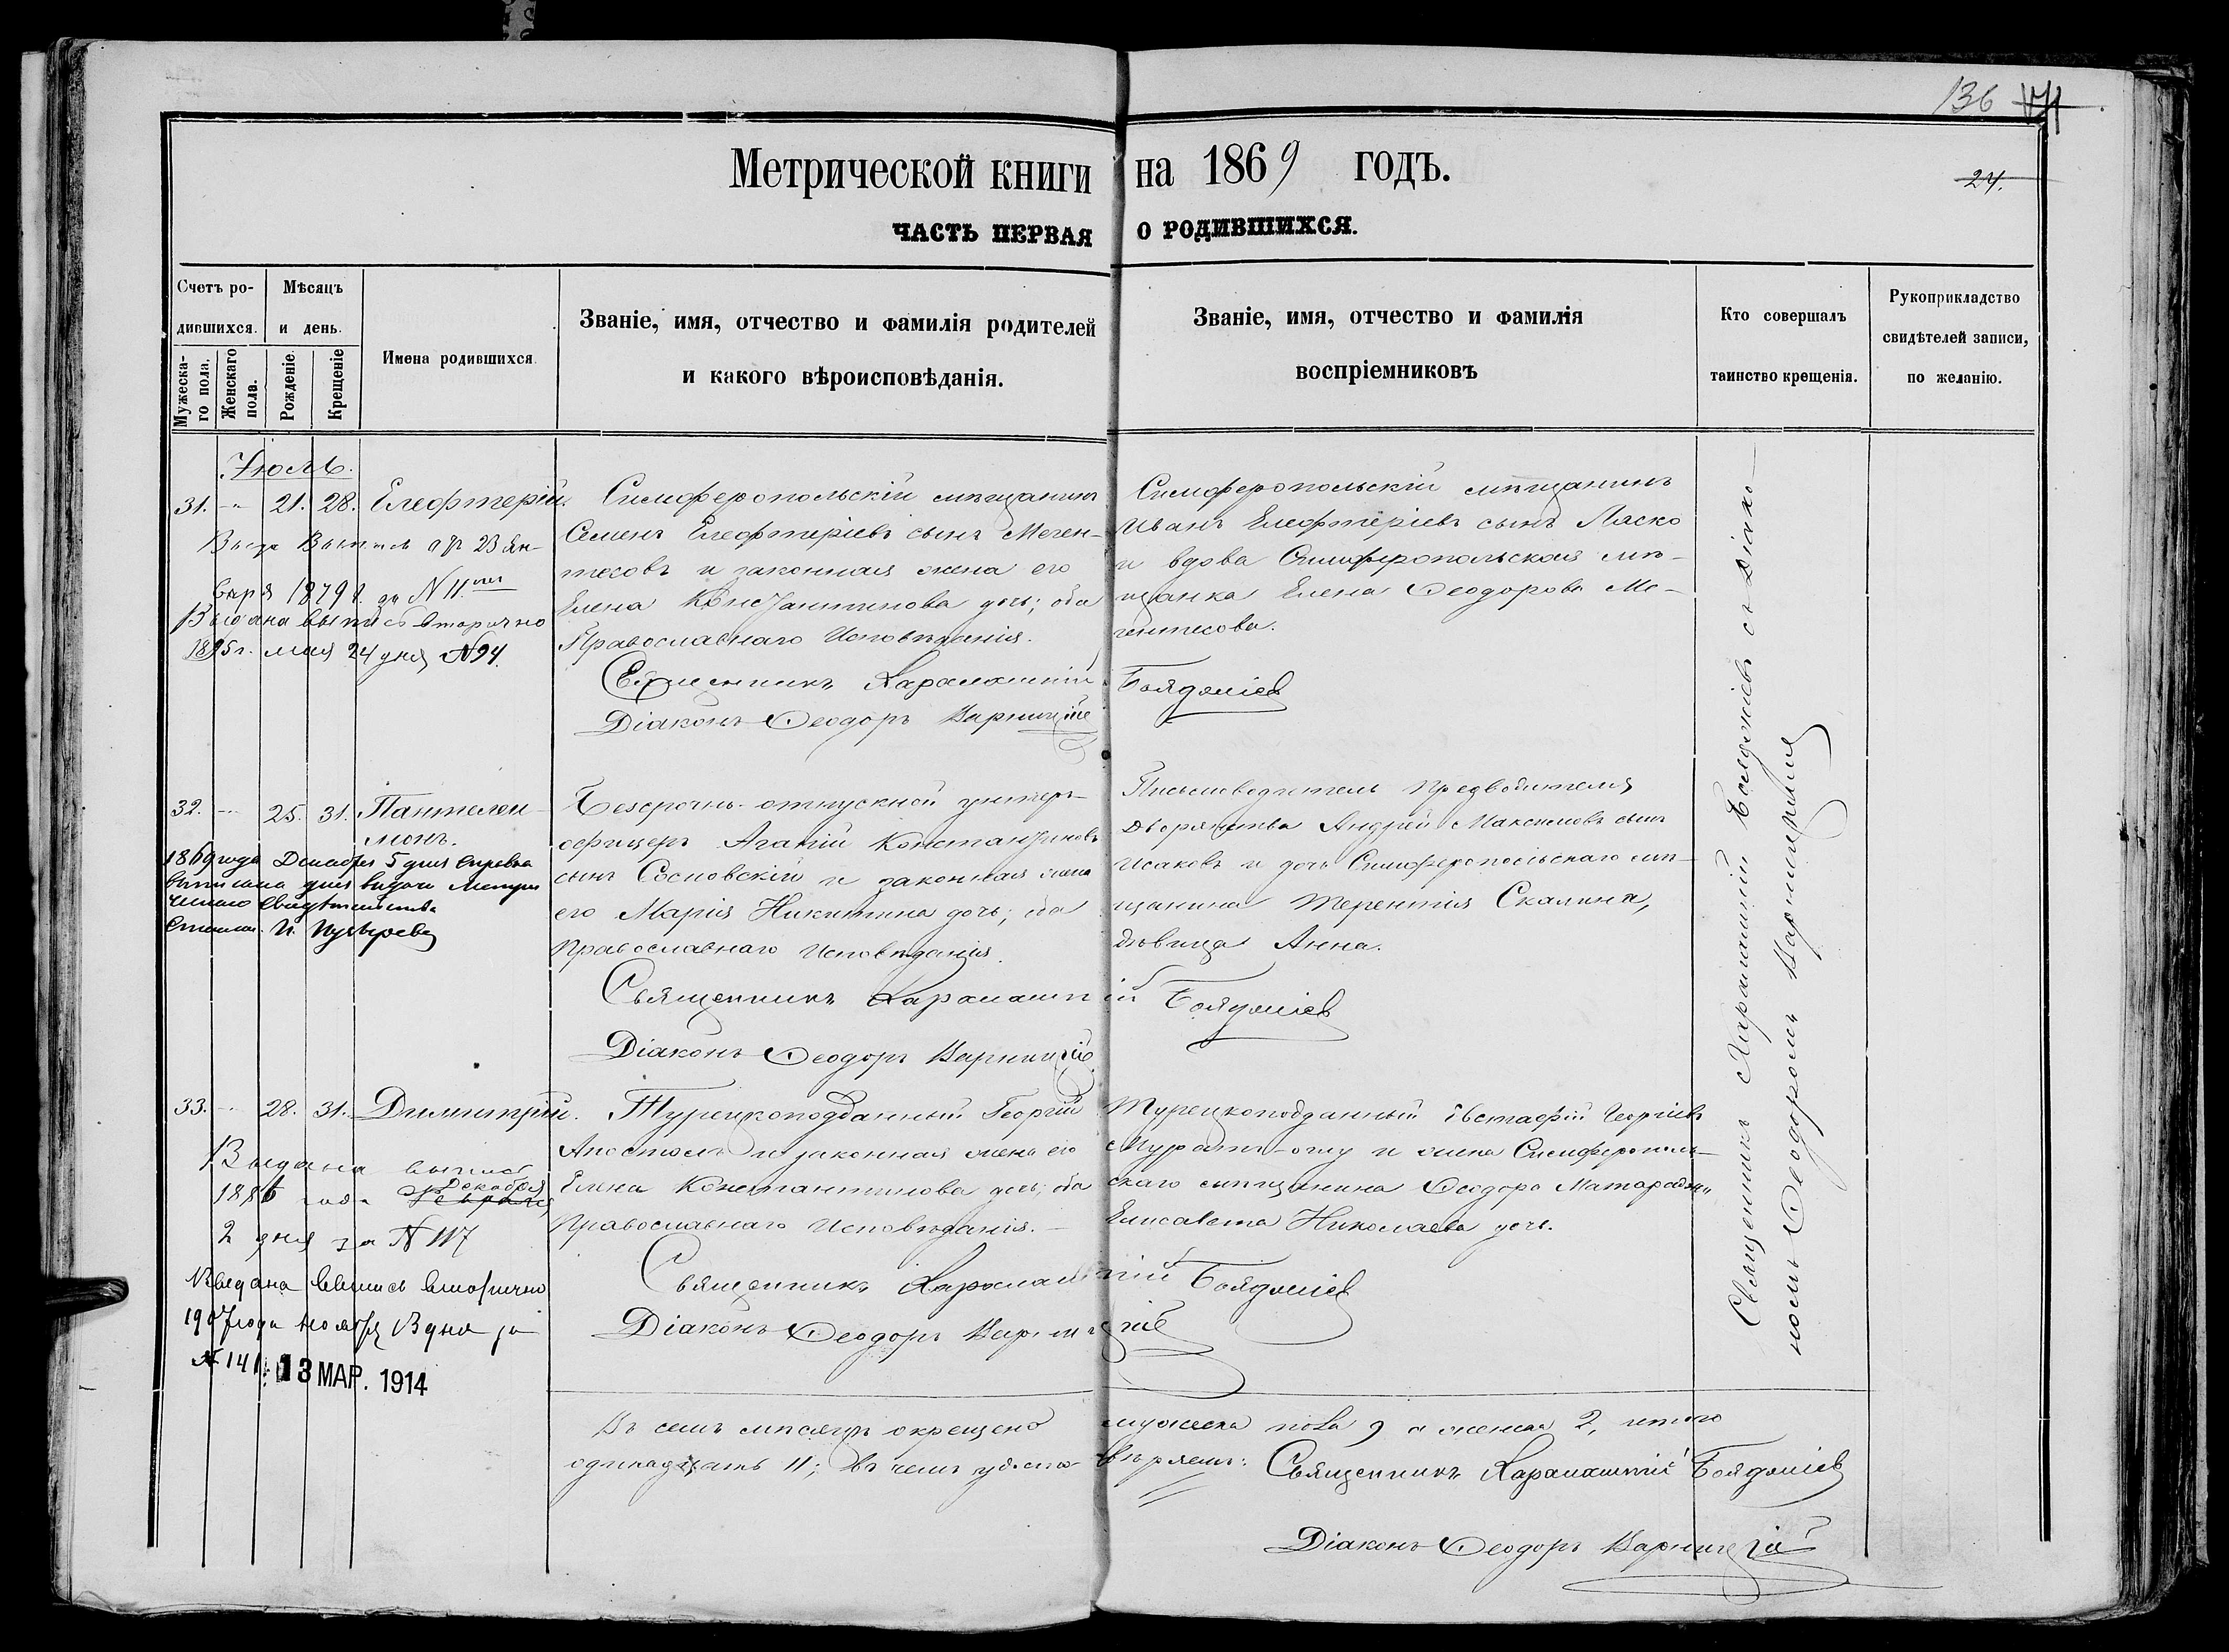 136
Метрической книги на 1869 годъ.
24.
ЧАСТЬ ПЕРВАЯ О РОДИВШИХСЯ.
Счетъ ро-
дившихся.
Мужеска-
го пола.
Женскаго
пола.
Мѣсяцъ
и день.
Рожденіе.
Крещеніе
Имена родившихся
Званіе, имя, отчество и фамилія родителей
и какого вѣроисповѣданія.
Званіе, имя, отчество и фамилія
воспріемниковъ
Кто совершалъ
таинство крещенія.
Рукоприкладство
свидѣтелей записи,
по желанію.
Іюль.
31. -„ 21. 28. Елефтерій.
Симферопольскій мѣщанинъ
Семенъ Елефтеріевъ сынъ Меген-
тесовъ и законная жена его
Елена Константинова дочь; оба
Православнаго Исповѣданія.
Священникъ Харалампій Бояджіев
Діаконъ Ѳеодоръ Варницкій
Симферопольскій мѣщанинъ
Иванъ Елефтеріевъ сынъ Ласко
и вдова Симферопольская мѣ-
щанка Елена Ѳеодорова Ме-
гентесова.
варя 1879 г. за N 11.
Выдана выпись вторично
1895 г. мая 24 дня N 94.
32. 25. 31. Пантелеи-
монъ.
1869 года Декабря 5 дня справка
выписана для выдачи Метри
ческаго свидѣтельства
Безсрочно-отпускной унтеръ-
офицеръ Агапій Константиновъ
сынъ Сосновскій и законная жена
его Марія Никитина дочь; оба
Православнаго Исповѣданія.
Священникъ Харалампій Бояджіев
Діаконъ Ѳеодоръ Варницкій
Письмоводитель Предводителя
Дворянства Андрей Максимовъ сынъ
Исаковъ и дочь Симферопольскаго мѣ-
щанина Терентія Скалина,
дѣвица Анна.
33. 28. 31. Димитрій.
Выдана выпись
1886 года Декабря
2 дня за N 117
Выдана выпись вторично
1907 года Ноября 3 дня за
N 141
13 МАР. 1914
Турецкоподданный Георгій
Апостолъ и законная жена его
Елена Константинова дочь; оба
Православнаго Исповѣданія.
Священникъ Харалампій Бояджіев
Діаконъ Ѳеодоръ Варницкій
Турецкоподданный Евстафій Георгіевъ
Муратъ-оглу и жена Симферополь-
скаго мѣщанина Ѳеодора
Елисавета Николаева дочь.
Священникъ Харалампій Бояджіевъ съ Діако-
номъ Ѳеодоромъ Варницкимъ
Въ семъ мѣсяцѣ окрещено мужеска пола 9 а женска 2, итого
одинадцать 11; въ чемъ удосто-вѣряемъ: Священникъ Харалампій Бояджіев
Діаконъ Ѳеодоръ Варницкій